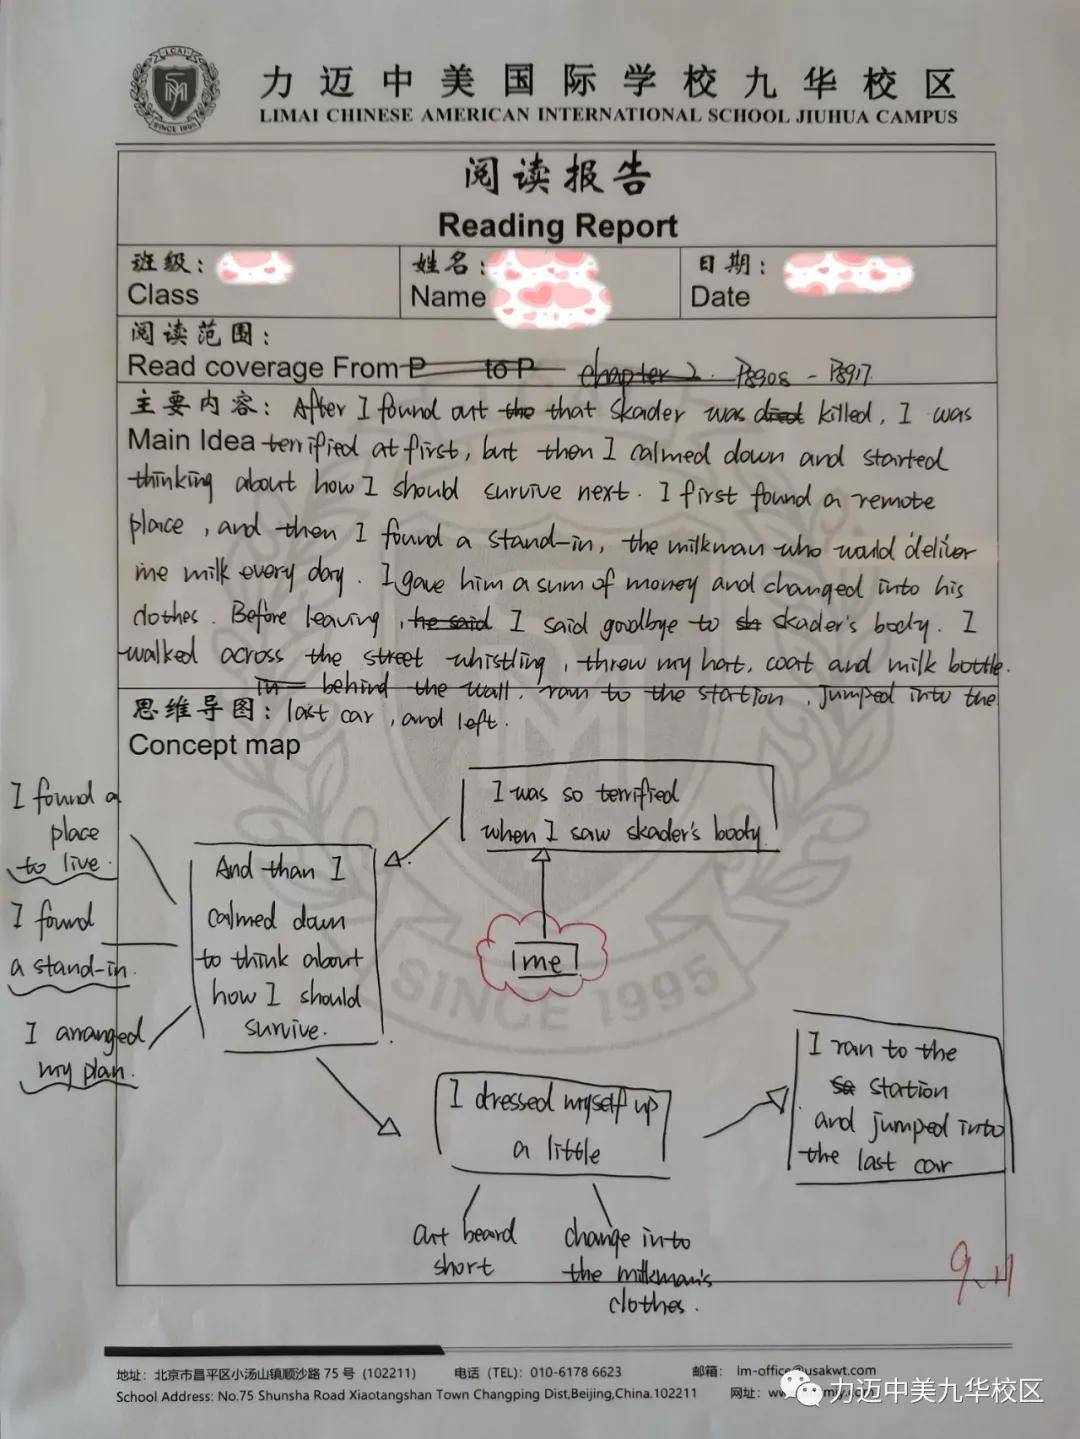 力迈中美国际学校九华校区
LIMAI CHINESE AMERICAN INTERNATIONAL SCHOOL JIUHUA CAMPUS
LCAI
SINCE 1995
阅读报告
Reading Report
班级：
Class
姓名：
Name
日期：
Date
阅读范围：
Read coverage From P to P chapter 2. P8908 - P8917.
主要内容： After I found out tho that skader was died killed, I was
Main Idea terrified at first, but then I calmed down and started
thinking about how I should survive next. I first found a remote
place, and then I found a stand-in, the milkman who would deliver
me milk every day. I gave him a sum of money and changed into his
clothes. Before leaving, he said I said goodbye to skader's body. I
walked across the street whistling, threw my hat, coat and milk bottle.
in behind the wall. ran to the station, jumped into the
思维导图： last car, and left.
Concept map
I found a
place
to live.
I found
a stand-in.
I arranged
my plan.
I was so terrified
when I saw skader's body
And than I
calmed down
to think about
how I should
survive.
me
SINCE 1995
I dressed myself up
a little
I ran to the
station
and jumped into
the last car
cut beard
short
change into
the milkman's
clothes.
地址：北京市昌平区小汤山镇顺沙路 75 号 (102211) 电话 (TEL)：010-6178 6623 邮箱： lm-office@usakwt.com
School Address: No.75 Shunsha Road Xiaotangshan Town Changping Dist,Beijing,China.102211 网址：
力迈中美九华校区